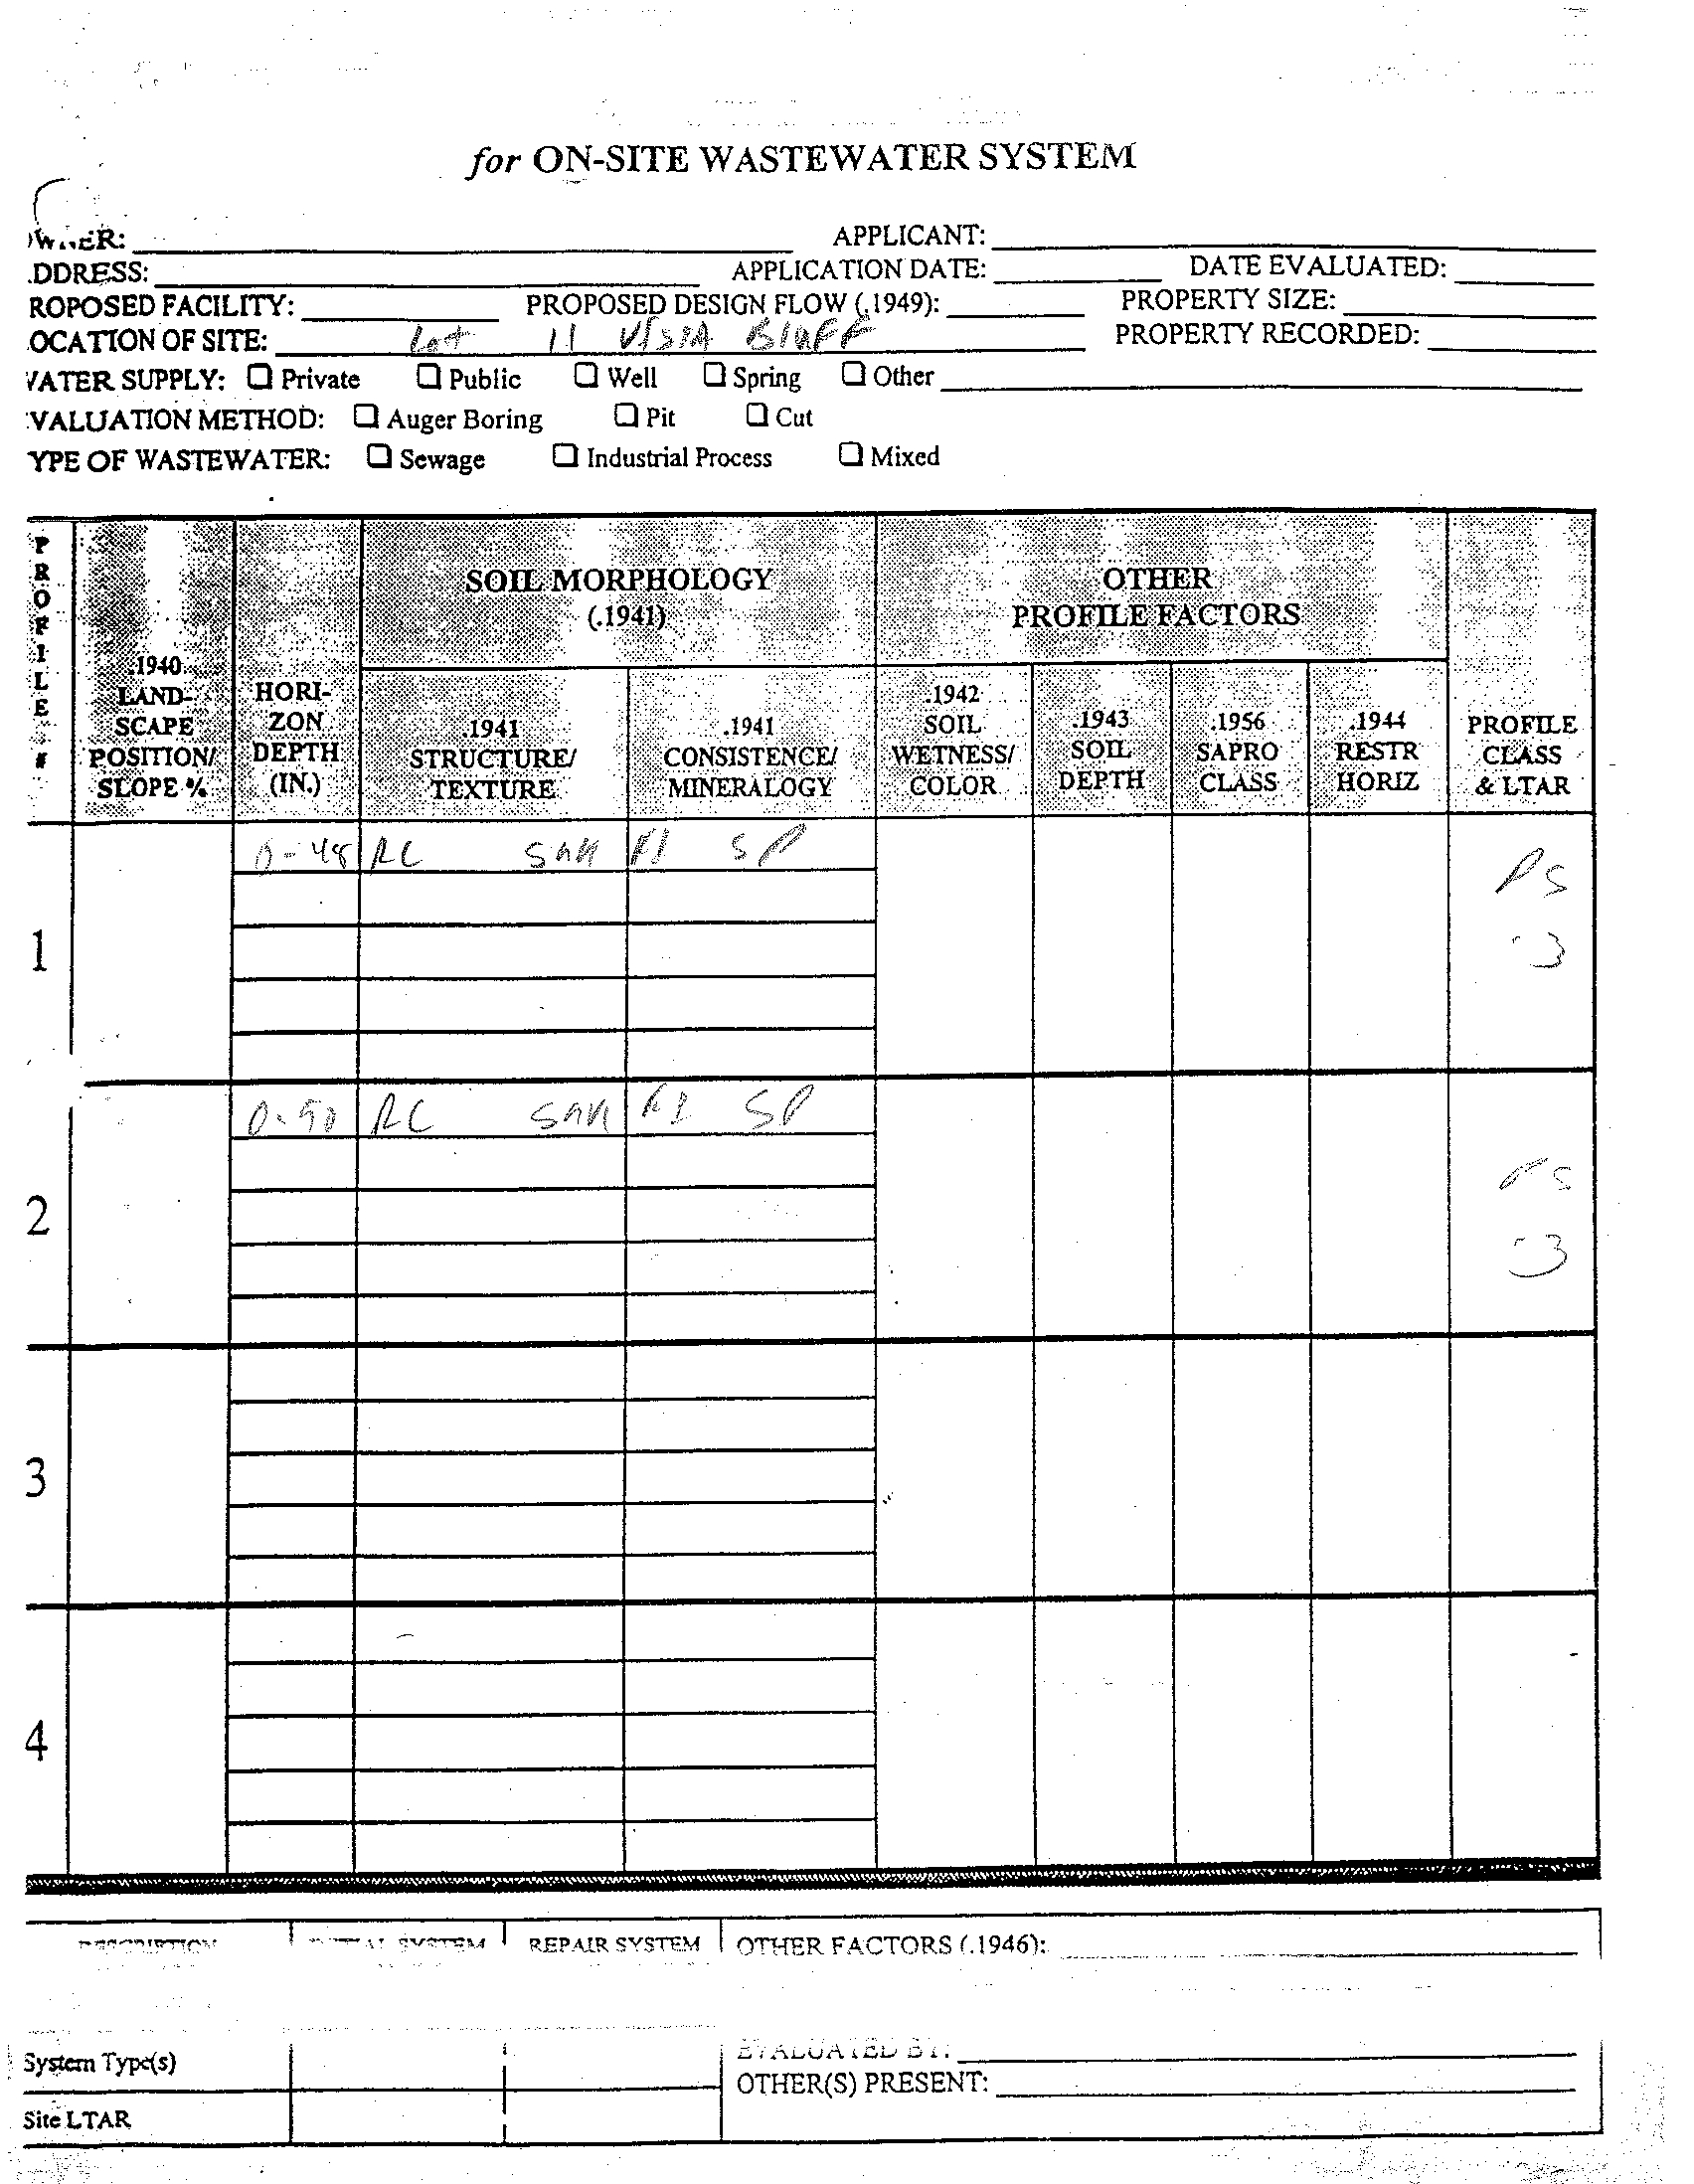 for ON-SITE WASTEWATER SYSTEM
OWNER: APPLICANT:
DDRESS: APPLICATION DATE: DATE EVALUATED:
ROPOSED FACILITY: PROPOSED DESIGN FLOW (.1949): PROPERTY SIZE:
OCATION OF SITE: Lot 11 VISTA BluFF PROPERTY RECORDED:
VATER SUPPLY: Private Public Well Spring Other
VALUATION METHOD: Auger Boring Pit Cut
YPE OF WASTEWATER: Sewage Industrial Process Mixed
PROFILE #
.1940 LAND-SCAPE POSITION/ SLOPE %
HORI-ZON DEPTH (IN.)
SOIL MORPHOLOGY
(.1941)
.1941 STRUCTURE/ TEXTURE
.1941 CONSISTENCE/ MINERALOGY
OTHER
PROFILE FACTORS
.1942 SOIL WETNESS/ COLOR
.1943 SOIL DEPTH
.1956 SAPRO CLASS
.1944 RESTR HORIZ
PROFILE CLASS & LTAR
1
0-48 RC FI SP
PS
.3
2
RC FI SP
PS
.3
3
4
DESCRIPTION INITIAL SYSTEM REPAIR SYSTEM OTHER FACTORS (.1946):
System Type(s) EVALUATED BY:
OTHER(S) PRESENT:
Site LTAR